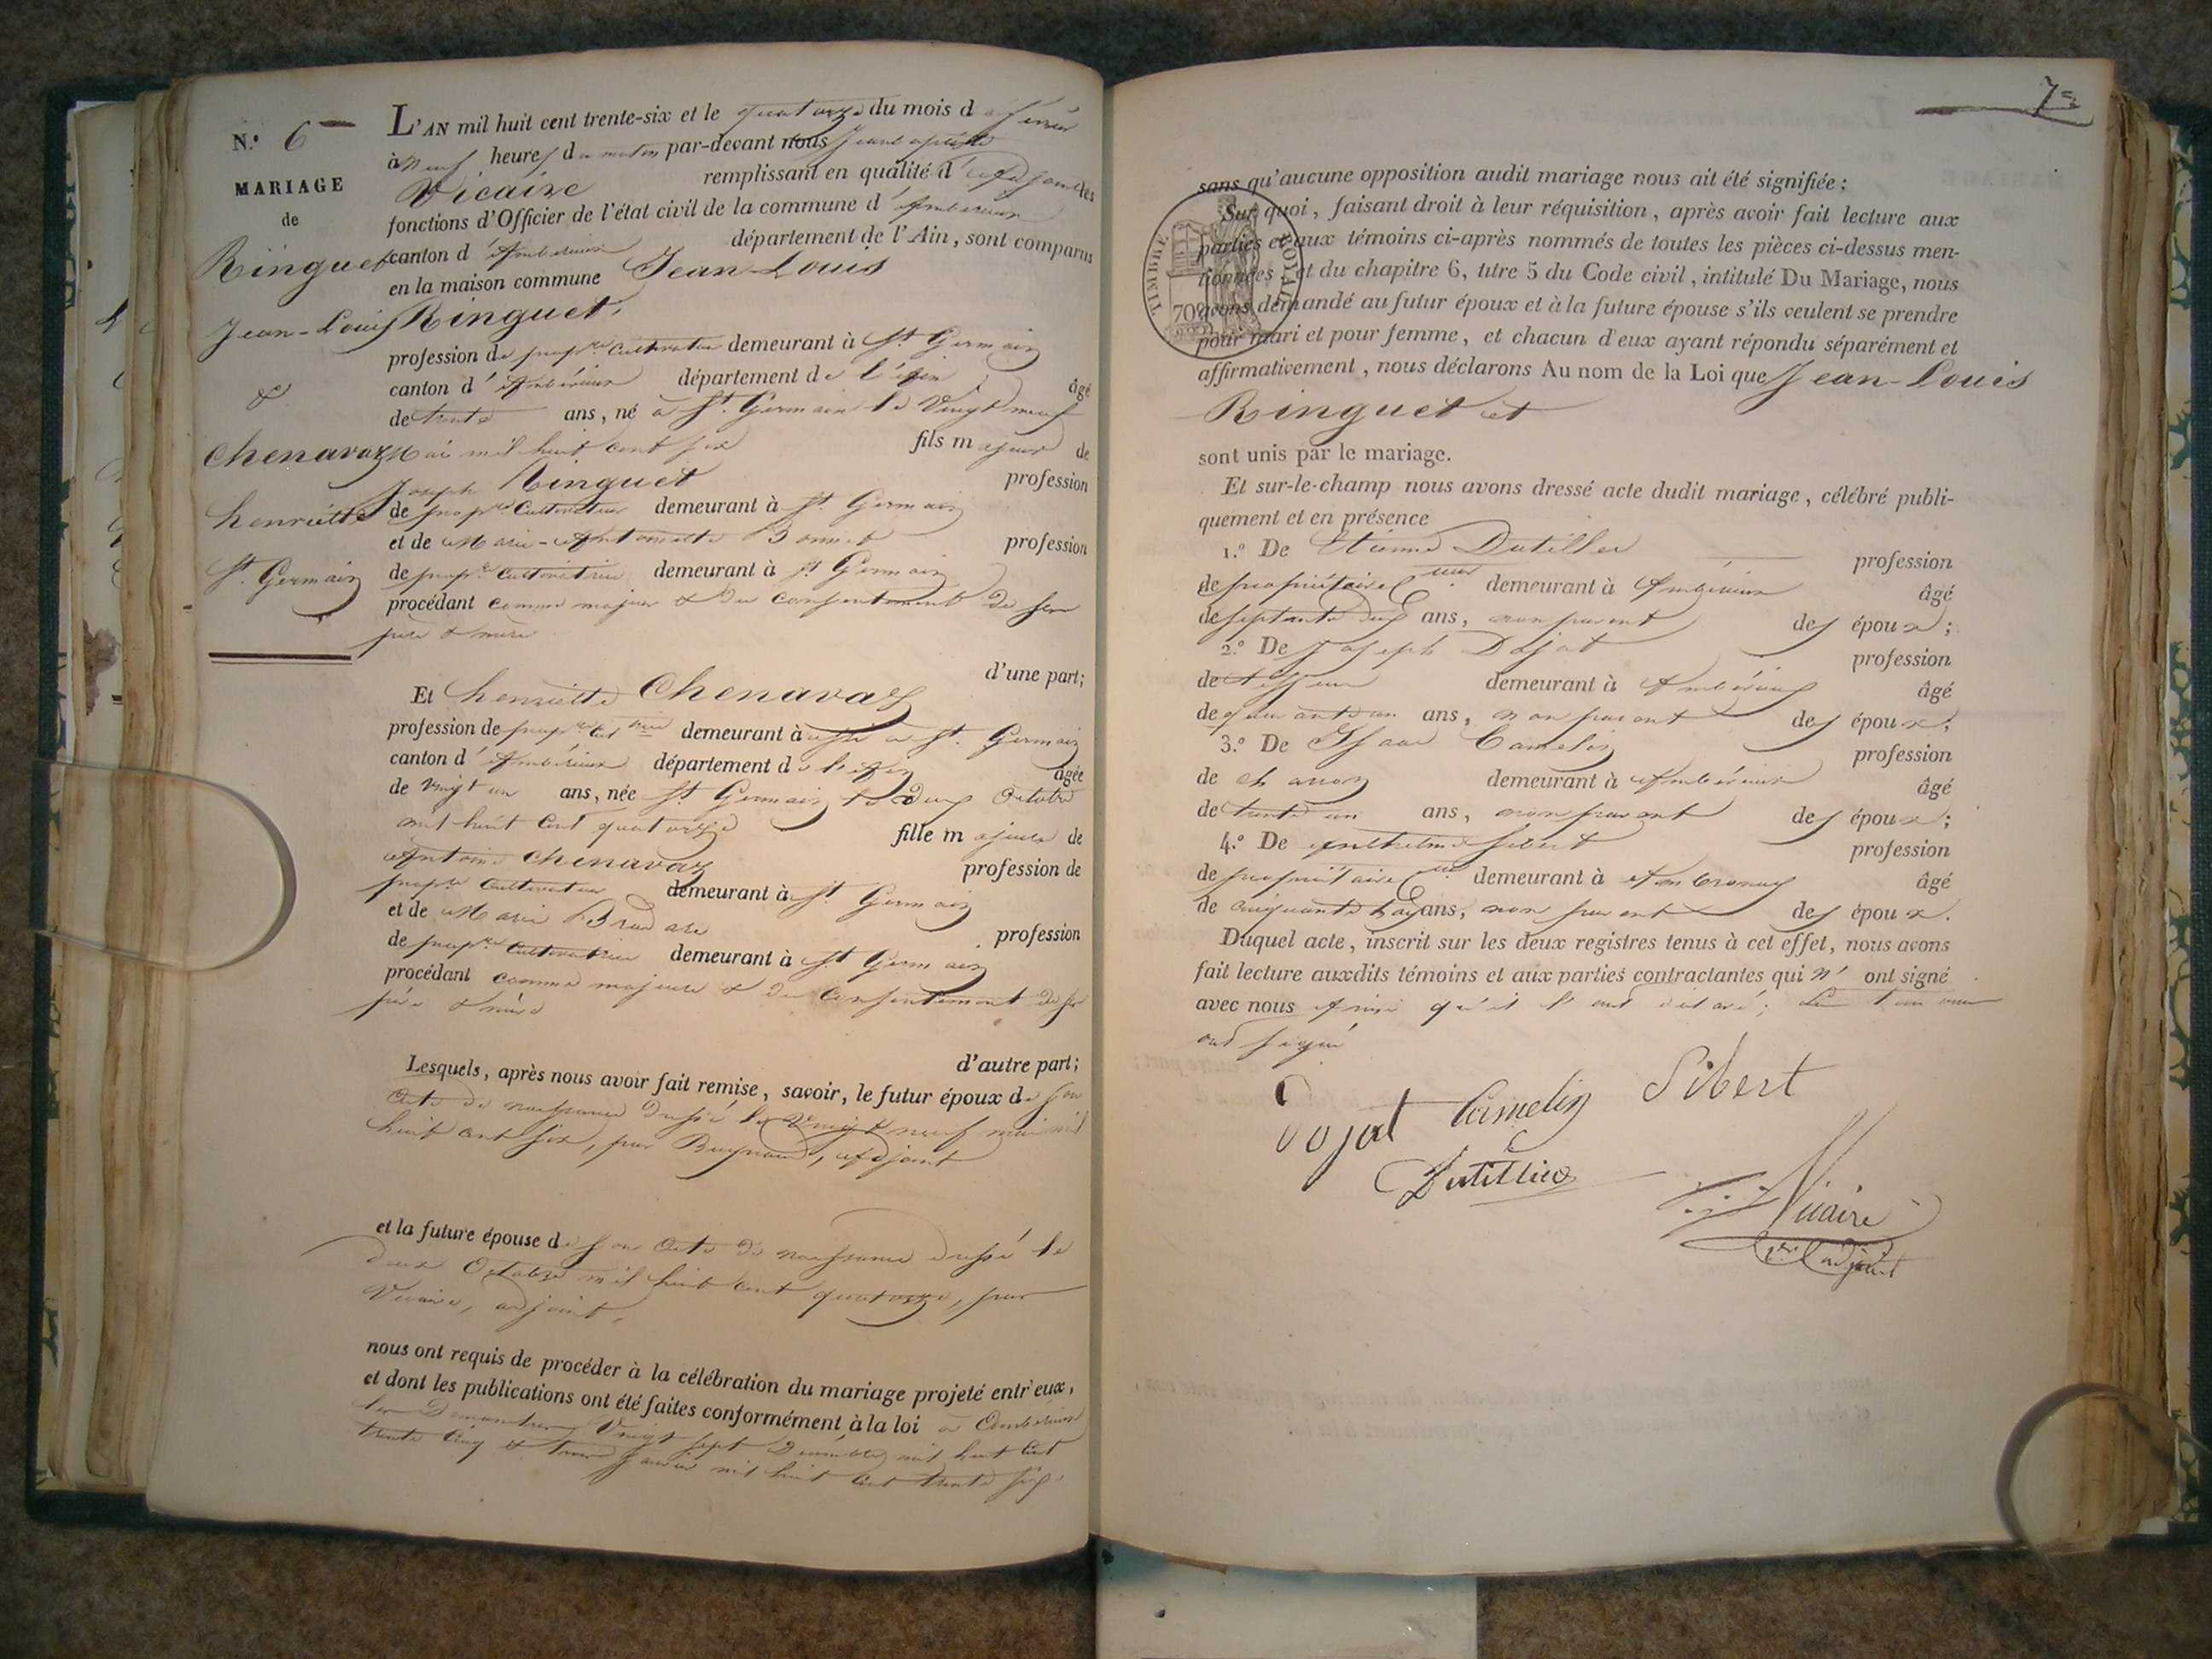 N.º 6
MARIAGE
de
Ringuet
Jean-Louis
&
Chenavaz
henriette
St. Germain
L'AN mil huit cent trente-six et le quatorze du mois d
à neuf heures du matin par-devant nous Jean Baptiste
Vicaire remplissant en qualité d'adjoint les
fonctions d'Officier de l'état civil de la commune d'Ambérieux
canton d'Ambérieux département de l'Ain, sont comparus
en la maison commune Jean-Louis
Ringuet,
profession de propre. Cultivateur demeurant à St. Germain
canton d'Ambérieux département de l'Ain âgé
de trente ans, né à St. Germain le Vingt neuf
Mai mil huit cent six fils majeur de
Joseph Ringuet profession
de propre. Cultivateur demeurant à St. Germain
et de Marie-Antoinette Bonnet profession
de propre. Cultivatrice demeurant à St. Germain
procédant comme majeur & du consentement de ses
père & mère
d'une part;
Et henriette Chenavaz
profession de demeurant à St. Germain
canton d'Ambérieux département de l'Ain âgée
de vingt un ans, née St. Germain le deux Octobre
mil huit cent quatorze fille majeure de
Antoine Chenavaz profession de
propre Cultivateur demeurant à St Germain
et de Marie profession
de propre. Cultivatrice demeurant à St. Germain
procédant comme majeure & du consentement de ses
père & mère
d'autre part;
Lesquels, après nous avoir fait remise, savoir, le futur époux de son
acte de naissance dressé le Vingt neuf mai mil
huit cent six, par adjoint
et la future épouse de son acte de naissance dressé le
deux Octobre mil huit cent quatorze, par
Vicaire, adjoint,
nous ont requis de procéder à la célébration du mariage projeté entr'eux,
et dont les publications ont été faites conformément à la loi à Ambérieux
les Dimanches Vingt sept Décembre mil huit cent
trente cinq & trois Janvier mil huit cent trente six
7
TIMBRE ROYAL
70
sans qu'aucune opposition audit mariage nous ait été signifiée;
Sur quoi, faisant droit à leur réquisition, après avoir fait lecture aux
parties et aux témoins ci-après nommés de toutes les pièces ci-dessus men-
tionnées, et du chapitre 6, titre 5 du Code civil, intitulé Du Mariage, nous
avons demandé au futur époux et à la future épouse s'ils veulent se prendre
pour mari et pour femme, et chacun d'eux ayant répondu séparément et
affirmativement, nous déclarons Au nom de la Loi que Jean-Louis
Ringuet et
sont unis par le mariage.
Et sur-le-champ nous avons dressé acte dudit mariage, célébré publi-
quement et en présence
1.º De Etienne Dutillieu profession
de propriétaire demeurant à Ambérieux âgé
de septante deux ans, non parent des époux;
2.º De Joseph Dojat profession
de demeurant à Ambérieux âgé
de quarante un ans, non parent des époux;
3.º De Isaac Camelin profession
de charron demeurant à Ambérieux âgé
de trente un ans, non parent des époux;
4.º De Anthelme Sibert profession
de propriétaire demeurant à Ambronay âgé
de cinquante ans, non parent des époux.
Duquel acte, inscrit sur les deux registres tenus à cet effet, nous avons
fait lecture auxdits témoins et aux parties contractantes qui n'ont signé
avec nous Ainsi qu'il l'ont déclaré; Les témoins
ont signé
Dojat Camelin Sibert
Dutillieu
Vicaire
adjoint